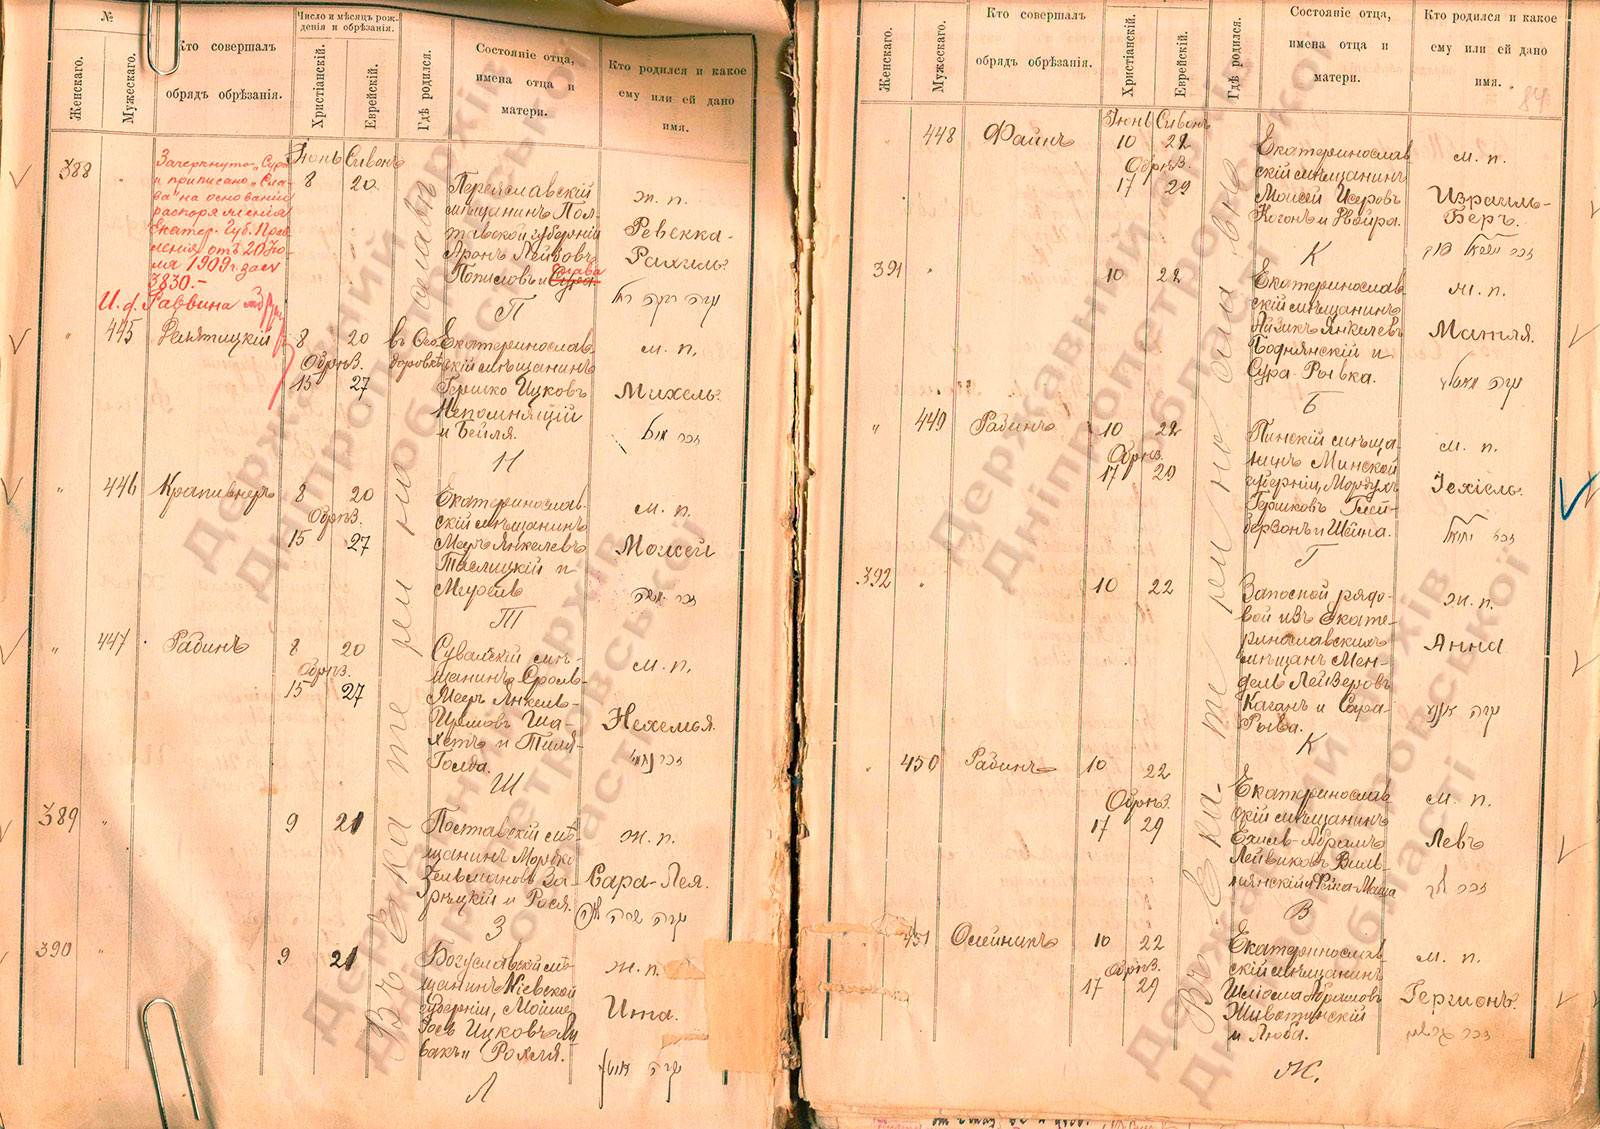 №
Женскаго.
Мужескаго.
Кто совершалъ
обрядъ обрѣзанія.
Число и мѣсяцъ рож-
денія и обрѣзанія.
Христіанскій.
Еврейскій.
Гдѣ родился.
Состояніе отца,
имена отца и
матери.
Кто родился и какое
ему или ей дано
имя.
388
Зачеркнуто „Сура“
и приписано „Сла-
ва“ на основаніи
распоряженія
Екатер. Губ. Прав
ленія отъ 20 Ію-
ля 1909 г. за №
3830.-
И. д. Раввина
Іюнь Сивонъ
8 20
Переяславскій
мѣщанинъ Пол-
тавской губерніи
Аронъ Лейбовъ
Пописловъ и Сура
Слава
П
ж. п.
Ревекка-
Рахиль.
445
8 20
Обрѣз.
15 27
Екатеринослав
скій мѣщанинъ
Гершко Ицковъ
Непомнящій
и Бейля.
Н
м. п.
Михель.
446
Крапивнеръ
8 20
Обрѣз.
15 27
Екатеринослав-
скій мѣщанинъ
Меръ Янкелевъ
Таслицкій и
Т
м. п.
Моисей
447
Рабинъ
8 20
Обрѣз.
15 27
Сувалскій мѣ-
щанинъ Сроль-
Меръ Янкель-
Ша-
хетъ и Тиля-
Голда.
Ш
м. п.
Нехемья.
389
9 21
Поставскій мѣ
щанинъ Мордко
Зельмановъ За-
рѣцкій и Рося.
З
ж. п.
Сара-Лея.
390
9 21
Богуславскій мѣ-
щанинъ Кіевской
губерніи, Мойше
Іось Ицковъ Ли
бакъ и Рохля.
Л
ж. п.
Ита.
Въ Екатеринославѣ
Женскаго.
Мужескаго.
Кто совершалъ
обрядъ обрѣзанія.
Христіанскій.
Еврейскій.
Гдѣ родился.
Состояніе отца,
имена отца и
матери.
Кто родился и какое
ему или ей дано
имя.
84
448
Файнъ
Іюнь Сивонъ
10 22
Обрѣз.
17 29
Екатеринослав
скій мѣщанинъ
Моисей Исеровъ
Когонъ и Двойра.
К
м. п.
Израиль-
Беръ.
391
10 22
Екатеринослав-
скій мѣщанинъ
Айзикъ Янкелевъ
Боднянскій и
Сура-Рывка.
Б
ж. п.
Матля.
449
Рабинъ
10 22
Обрѣз.
17 29
Пинскій мѣща-
нинъ Минской
губерніи Мордухъ
Гершковъ Глей-
берзонъ и Шейна.
Г
м. п.
Іехіель.
392
10 22
Запасной рядо-
вой изъ Екате-
ринославскихъ
мѣщанъ Мен-
дель Лейзеровъ
Каганъ и Сара-
Рыва.
К
ж. п.
Анна
450
Рабинъ
10 22
Обрѣз.
17 29
Екатеринослав
скій мѣщанинъ
Ехиель-Абрамъ
Лейвиковъ Виль-
нянскій и Рейка-Маша
В
м. п.
Левъ
451
Олейникъ
10 22
Обрѣз.
17 29
Екатеринослав-
скій мѣщанинъ
Шліома Абрамовъ
Животинскій
и Люба.
Ж.
м. п.
Гершонъ.
Державний архів
Дніпропетровської
області